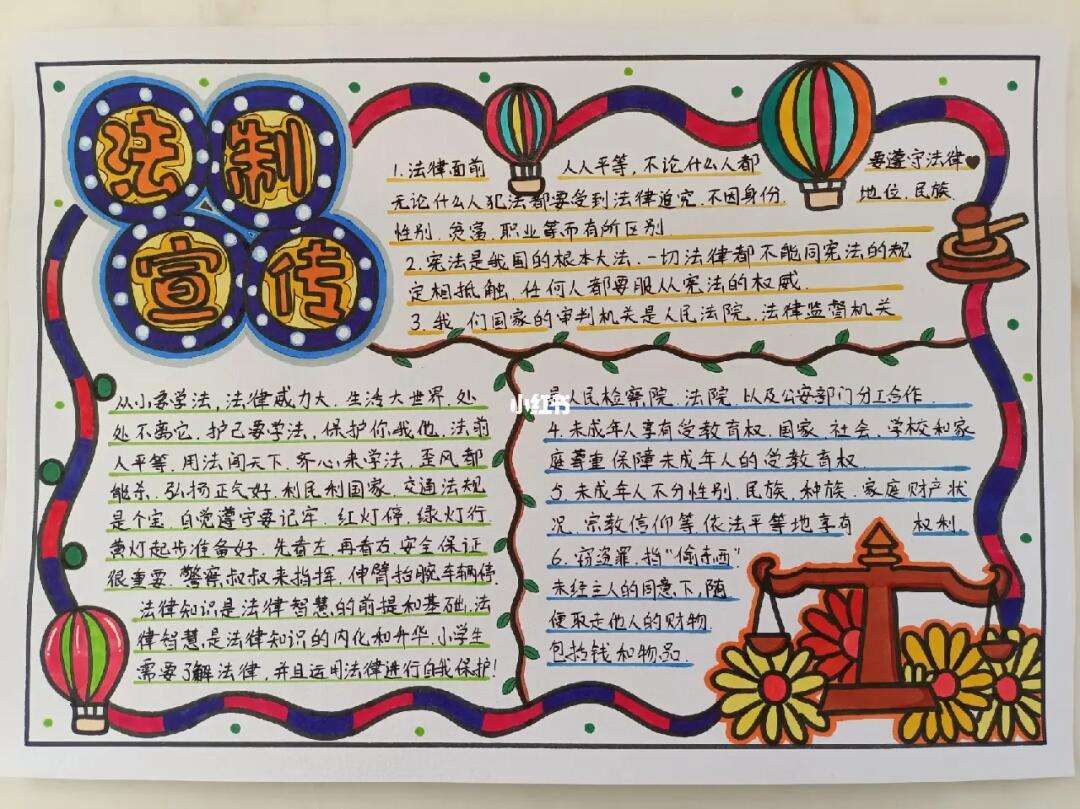 法制
宣传
1.法律面前 人人平等，不论什么人都 要遵守法律
无论什么人犯法都要受到法律追究.不因身份 地位.民族.
性别.贫富.职业等而有所区别
2.宪法是我国的根本大法.一切法律都不能同宪法的规
定相抵触.任何人都要服从宪法的权威.
3.我们国家的审判机关是人民法院.法律监督机关
从小要学法，法律威力大.生活大世界.处
处不离它.护己要学法，保护你我他.法前
人平等.用法闯天下.齐心来学法.歪风都
能杀.弘扬正气好.利民利国家.交通法规
是个宝.自觉遵守要记牢.红灯停.绿灯行
黄灯起步准备好.先看左.再看右.安全保证
很重要.警察叔叔来指挥.伸臂抬腕车辆停.
法律知识是法律智慧的前提和基础.法
律智慧是法律知识的内化和升华.小学生
需要了解法律，并且运用法律进行自我保护！
是人民检察院.法院.以及公安部门分工合作.
4.未成年人享有受教育权.国家.社会.学校和家
庭尊重保障未成年人的受教育权.
5.未成年人不分性别.民族.种族.家庭财产状
况.宗教信仰等依法平等地享有 权利.
6.窃盗罪.指“偷东西”
未经主人的同意下，随
便取走他人的财物.
包括钱和物品.
小红书